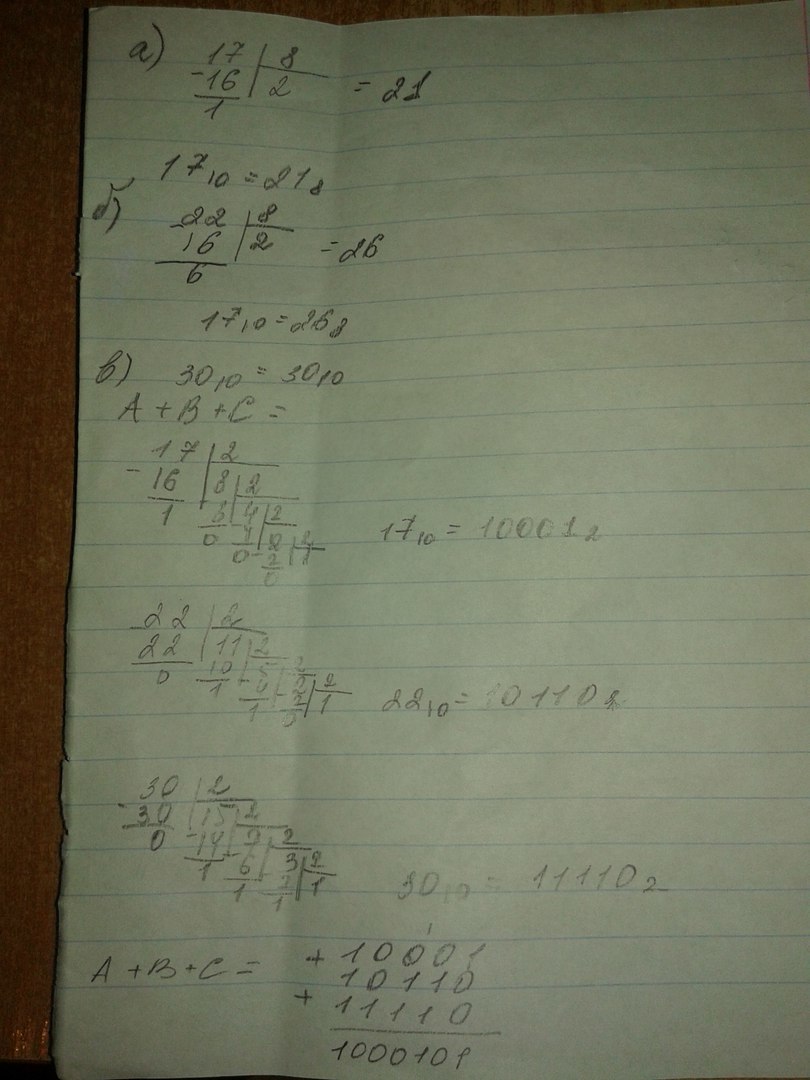 а) 17 | 8
-16 | 2 = 21
1
17₁₀ = 21₈
б) 22 | 8
-16 | 2 = 26
6
17₁₀ = 26₈
в) 30₁₀ = 30₁₀
A + B + C =
17 | 2
-16 | 8 | 2
1 8 4 | 2
0 4 2 | 2
0 2 1
0
17₁₀ = 10001₂
22 | 2
22 | 11 | 2
0 10 5 | 2
1 4 2 | 2
1 2 1
0
22₁₀ = 10110₂
30 | 2
-30 | 15 | 2
0 -14 7 | 2
1 6 3 | 2
1 2 1
1
30₁₀ = 11110₂
1
A + B + C = + 10001
10110
+ 11110
1000101